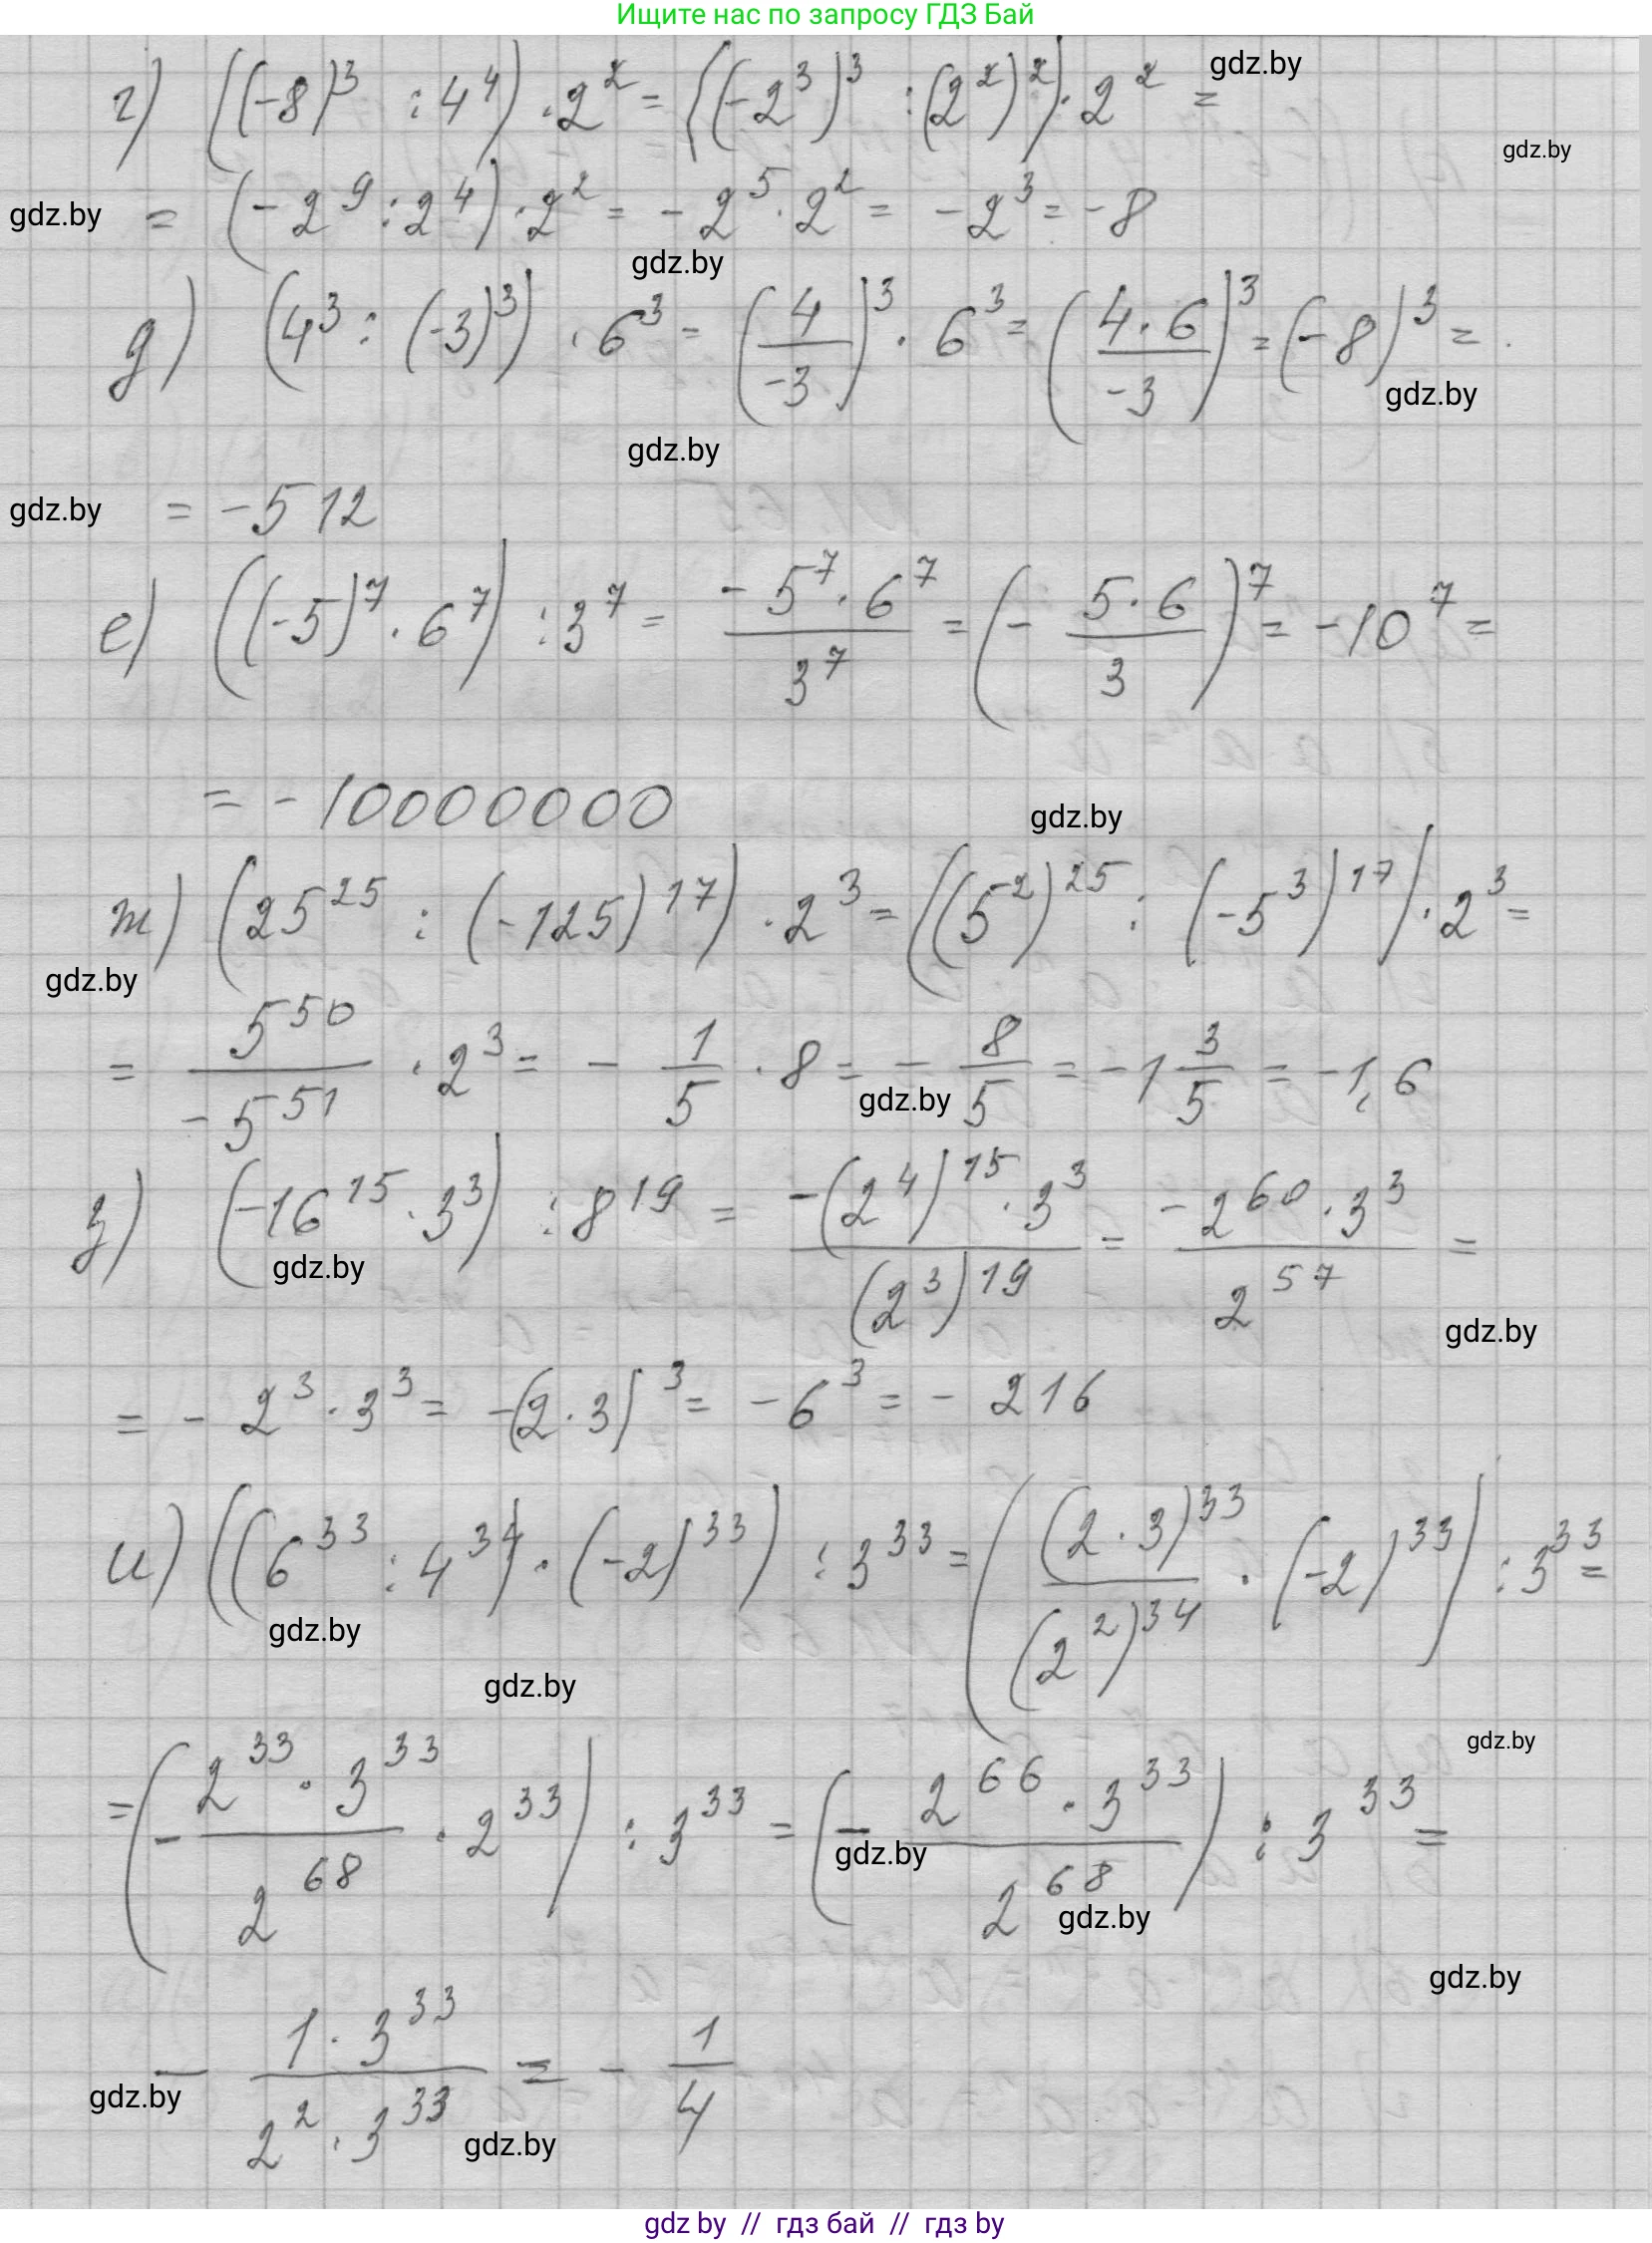 Ищите нас по запросу ГДЗ Бай
gdz.by
г) ((-8)³ : 4⁴) · 2² = ((-2³)³ : (2²)²) · 2² =
gdz.by
gdz.by
= (-2⁹ : 2⁴) · 2² = -2⁵ · 2² = -2³ = -8
gdz.by
д) (4³ : (-3)³) · 6³ = (4/-3)³ · 6³ = (4·6/-3)³ = (-8)³ =
gdz.by
gdz.by
gdz.by
= -512
е) ((-5)⁷ · 6⁷) : 3⁷ = -5⁷·6⁷/3⁷ = (- 5·6/3)⁷ = -10⁷ =
= -10000000
gdz.by
ж) (25²⁵ : (-125)¹⁷) · 2³ = ((5²)²⁵ : (-5³)¹⁷) · 2³ =
gdz.by
= 5⁵⁰/-5⁵¹ · 2³ = - 1/5 · 8 = - 8/5 = -1 3/5 = -1,6
gdz.by
з) (-16¹⁵ · 3³) : 8¹⁹ = -(2⁴)¹⁵ · 3³/(2³)¹⁹ = -2⁶⁰ · 3³/2⁵⁷ =
gdz.by
gdz.by
= - 2³ · 3³ = -(2·3)³ = -6³ = - 216
и) ((6³³ : 4³⁴) · (-2)³³) : 3³³ = ((2·3)³³/(2²)³⁴ · (-2)³³) : 3³³ =
gdz.by
gdz.by
gdz.by
= (- 2³³ · 3³³/2⁶⁸ · 2³³) : 3³³ = (- 2⁶⁶ · 3³³/2⁶⁸) : 3³³ =
gdz.by
gdz.by
gdz.by
- 1 · 3³³/2² · 3³³ = - 1/4
gdz.by
gdz.by
gdz by // гдз бай // гдз by